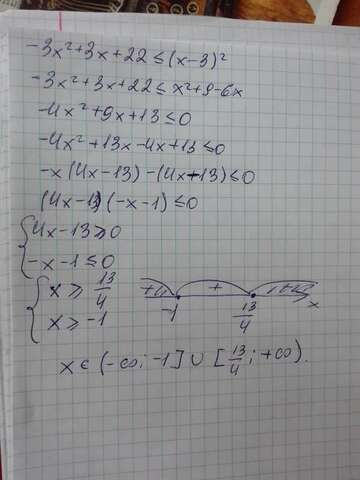 -3x²+3x+22≤(x-3)²
-3x²+3x+22≤x²+9-6x
-4x²+9x+13≤0
-4x²+13x-4x+13≤0
-x(4x-13)-(4x-13)≤0
(4x-13)(-x-1)≤0
4x-13≥0
-x-1≤0
x≥13/4
x≥-1
+
-1 13/4 x
x∈(-∞;-1]∪[13/4;+∞).